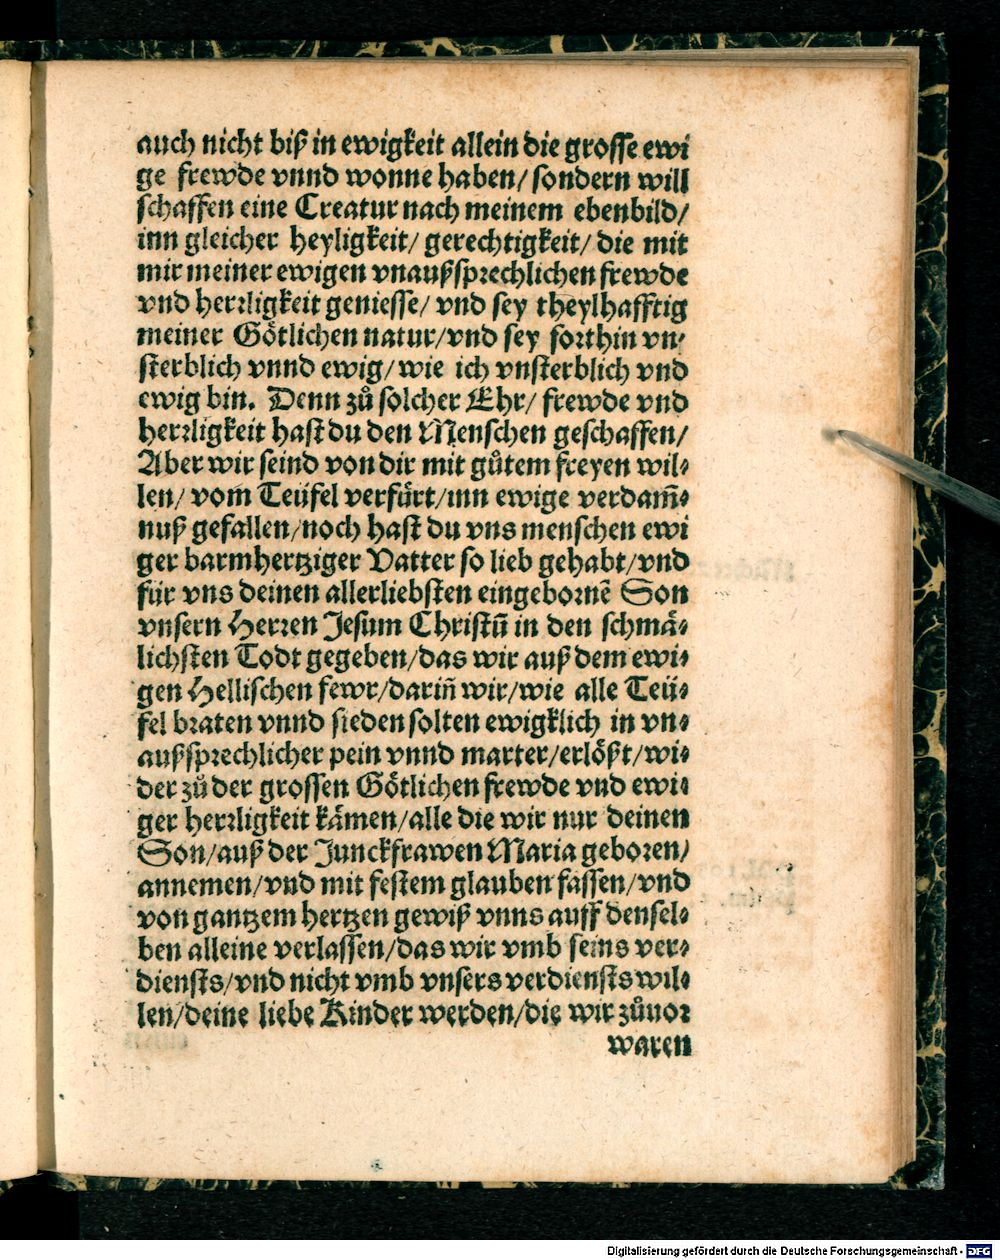 auch nicht biß in ewigkeit allein die grosse ewi
ge frewde vnnd wonne haben/ sondern will
schaffen eine Creatur nach meinem ebenbild/
inn gleicher heyligkeit/ gerechtigkeit/ die mit
mir meiner ewigen vnaußsprechlichen frewde
vnd herrligkeit geniesse/ vnd sey theylhafftig
meiner Götlichen natur/vnd sey forthin vn⸗
sterblich vnnd ewig/ wie ich vnsterblich vnd
ewig bin. Denn zů solcher Ehr/ frewde vnd
herrligkeit hast du den Menschen geschaffen/
Aber wir seind von dir mit gůtem freyen wil⸗
len/ vom Teüfel verfürt/inn ewige verdam̃⸗
nuß gefallen/noch hast du vns menschen ewi
ger barmhertziger Vatter so lieb gehabt/vnd
für vns deinen allerliebsten eingebornẽ Son
vnsern Herren Jesum Christũ in den schmä⸗
lichsten Todt gegeben/das wir auß dem ewi⸗
gen Hellischen fewr/dariñ wir/wie alle Teü⸗
fel braten vnnd sieden solten ewigklich in vn⸗
außsprechlicher pein vnnd marter/erlößt/wi⸗
der zů der grossen Götlichen frewde vnd ewi⸗
ger herrligkeit kämen/alle die wir nur deinen
Son/auß der Junckfrawen Maria geboren/
annemen/vnd mit festem glauben fassen/vnd
von gantzem hertzen gewiß vnns auff densel⸗
ben alleine verlassen/das wir vmb seins ver⸗
diensts/vnd nicht vmb vnsers verdiensts wil⸗
len/deine liebe Kinder werden/die wir zůuor
waren
Digitalisierung gefördert durch die Deutsche Forschungsgemeinschaft - DFG